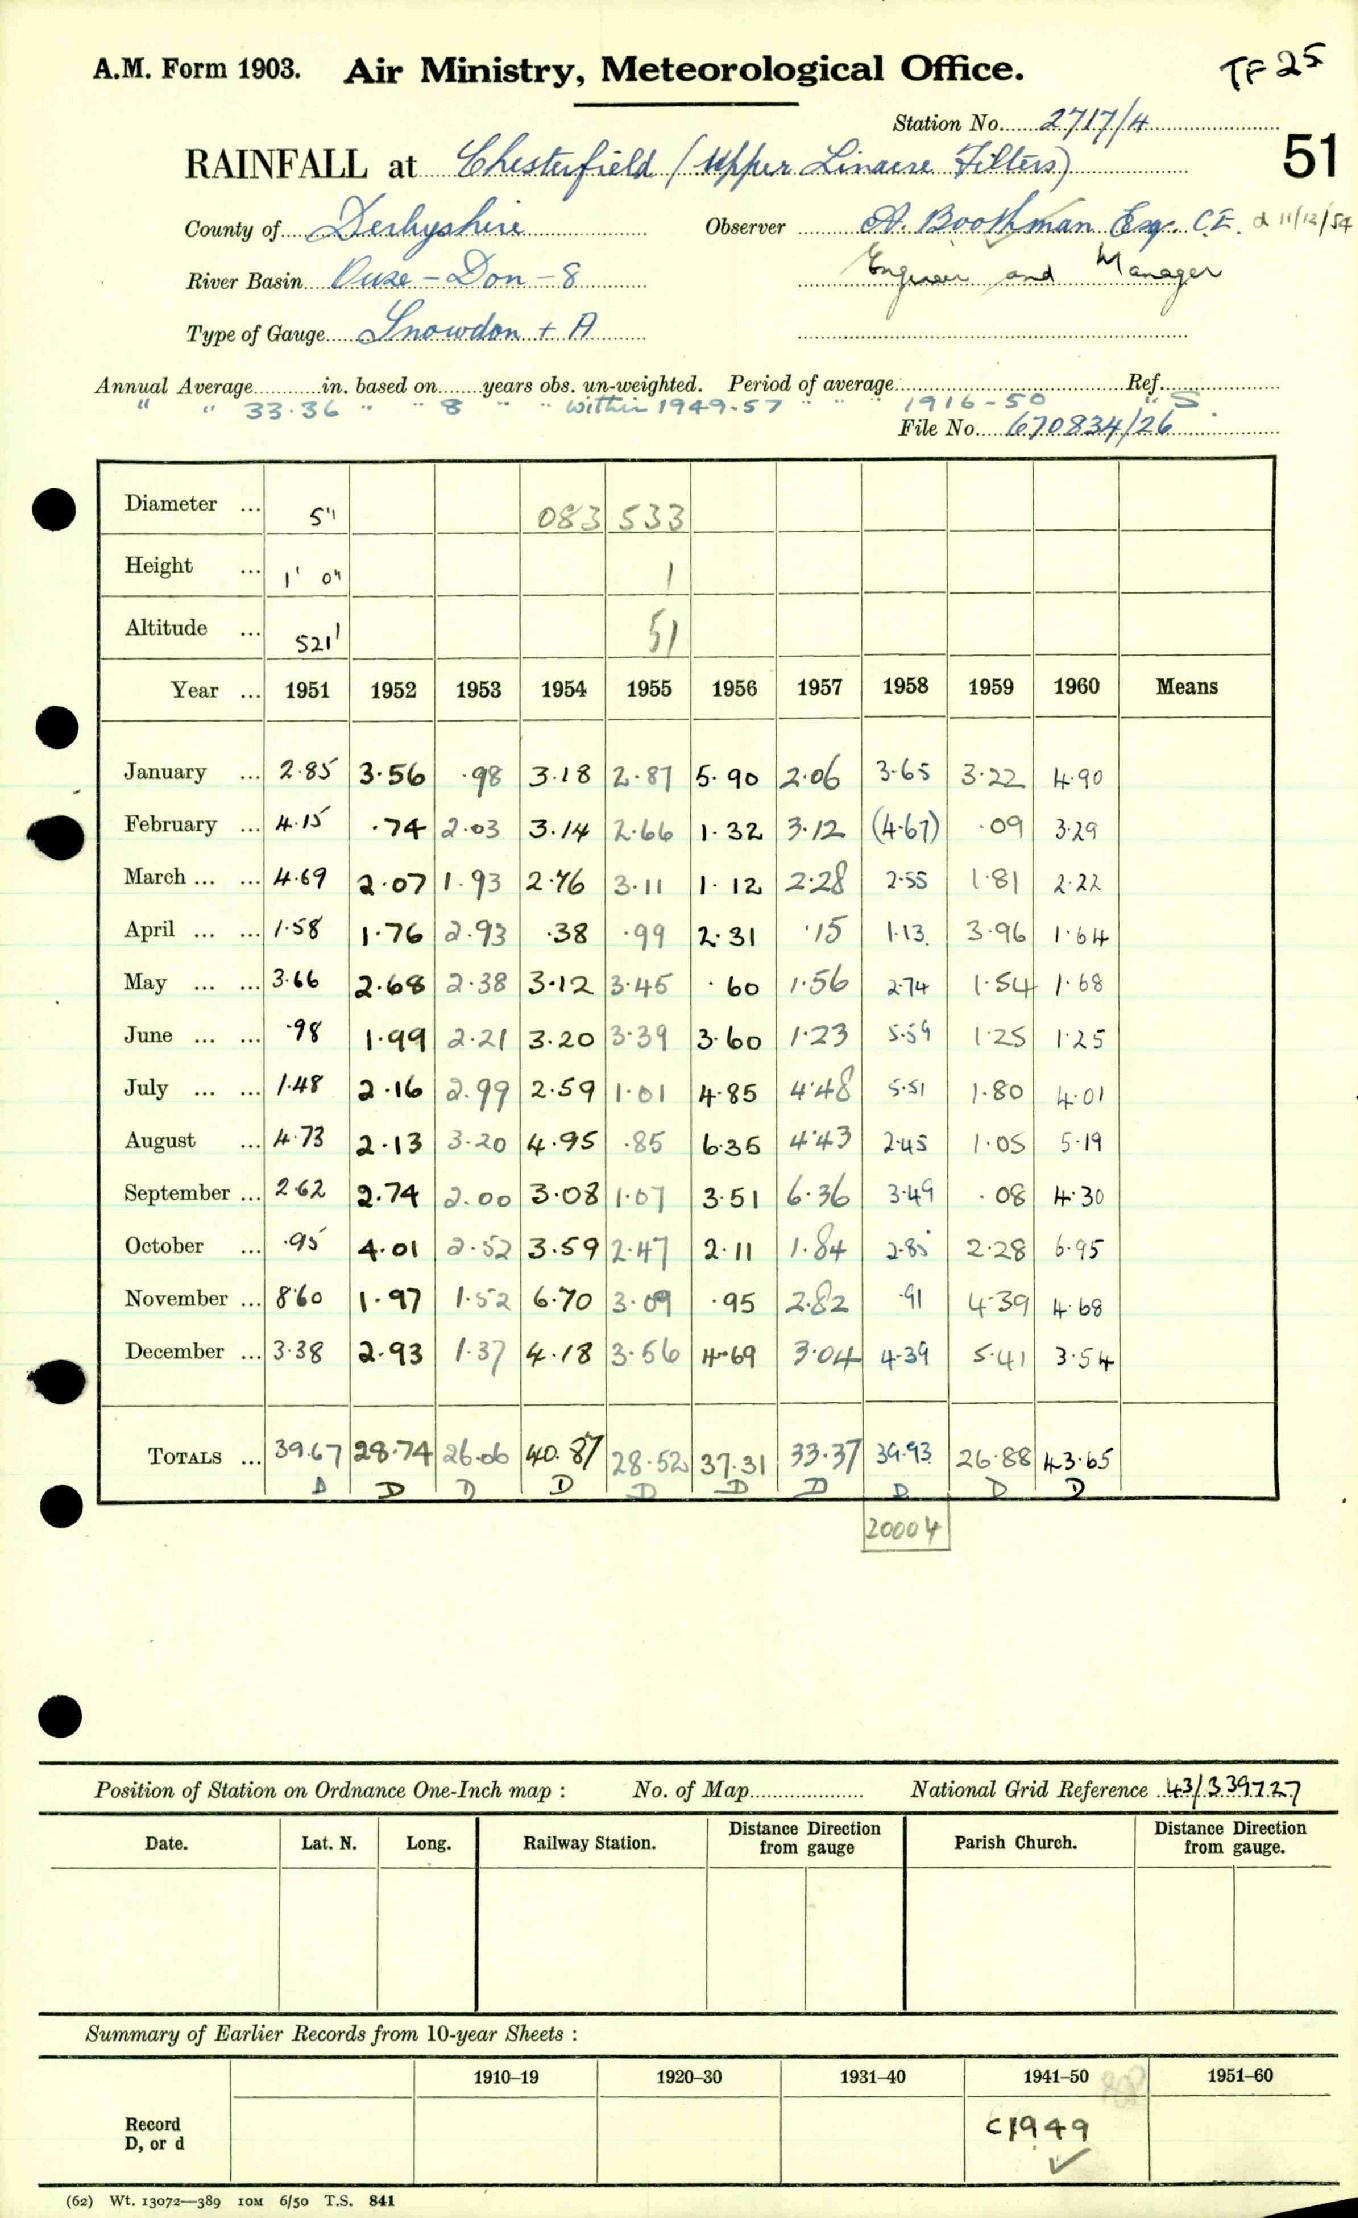 A.M. Form 1903. Air Ministry, Meteorological Office. TF 25
Station No. 2717/4
51
RAINFALL at Chesterfield (Upper Linacre Filters)
County of Derbyshire Observer A. Boothman Esq. C.E. d 11/12/54
River Basin Ouse - Don - 8 Engineer and Manager
Type of Gauge Snowdon + A
Annual Average in. based on years obs. un-weighted. Period of average Ref.
" " 33.36 " " 8 " " within 1949-57 " " " 1916-50 " S.
File No. 670834/26
Diameter ... 5" 083 533
Height ... 1' 0" 1
Altitude ... 521' 51
Year ... 1951 1952 1953 1954 1955 1956 1957 1958 1959 1960 Means
January ... 2.85 3.56 .98 3.18 2.87 5.90 2.06 3.65 3.22 4.90
February ... 4.15 .74 2.03 3.14 2.66 1.32 3.12 (4.67) .09 3.29
March ... ... 4.69 2.07 1.93 2.76 3.11 1.12 2.28 2.55 1.81 2.22
April ... ... 1.58 1.76 2.93 .38 .99 2.31 .15 1.13 3.96 1.64
May ... ... 3.66 2.68 2.38 3.12 3.45 .60 1.56 2.74 1.54 1.68
June ... ... .98 1.99 2.21 3.20 3.39 3.60 1.23 5.59 1.25 1.25
July ... ... 1.48 2.16 2.99 2.59 1.01 4.85 4.48 5.51 1.80 4.01
August ... 4.73 2.13 3.20 4.95 .85 6.35 4.43 2.45 1.05 5.19
September ... 2.62 2.74 2.00 3.08 1.07 3.51 6.36 3.49 .08 4.30
October ... .95 4.01 2.52 3.59 2.47 2.11 1.84 2.85 2.28 6.95
November ... 8.60 1.97 1.52 6.70 3.09 .95 2.82 .91 4.39 4.68
December ... 3.38 2.93 1.37 4.18 3.56 4.69 3.04 4.39 5.41 3.54
TOTALS ... 39.67 28.74 26.06 40.87 28.52 37.31 33.37 39.93 26.88 43.65
D D D D D D D D D D
20004
Position of Station on Ordnance One-Inch map : No. of Map National Grid Reference 43/339727
Date. Lat. N. Long. Railway Station. Distance from Direction gauge Parish Church. Distance from Direction gauge.
Summary of Earlier Records from 10-year Sheets :
1910–19 1920–30 1931–40 1941–50 1951–60
Record
D, or d
C1949
(62) Wt. 13072—389 10M 6/50 T.S. 841